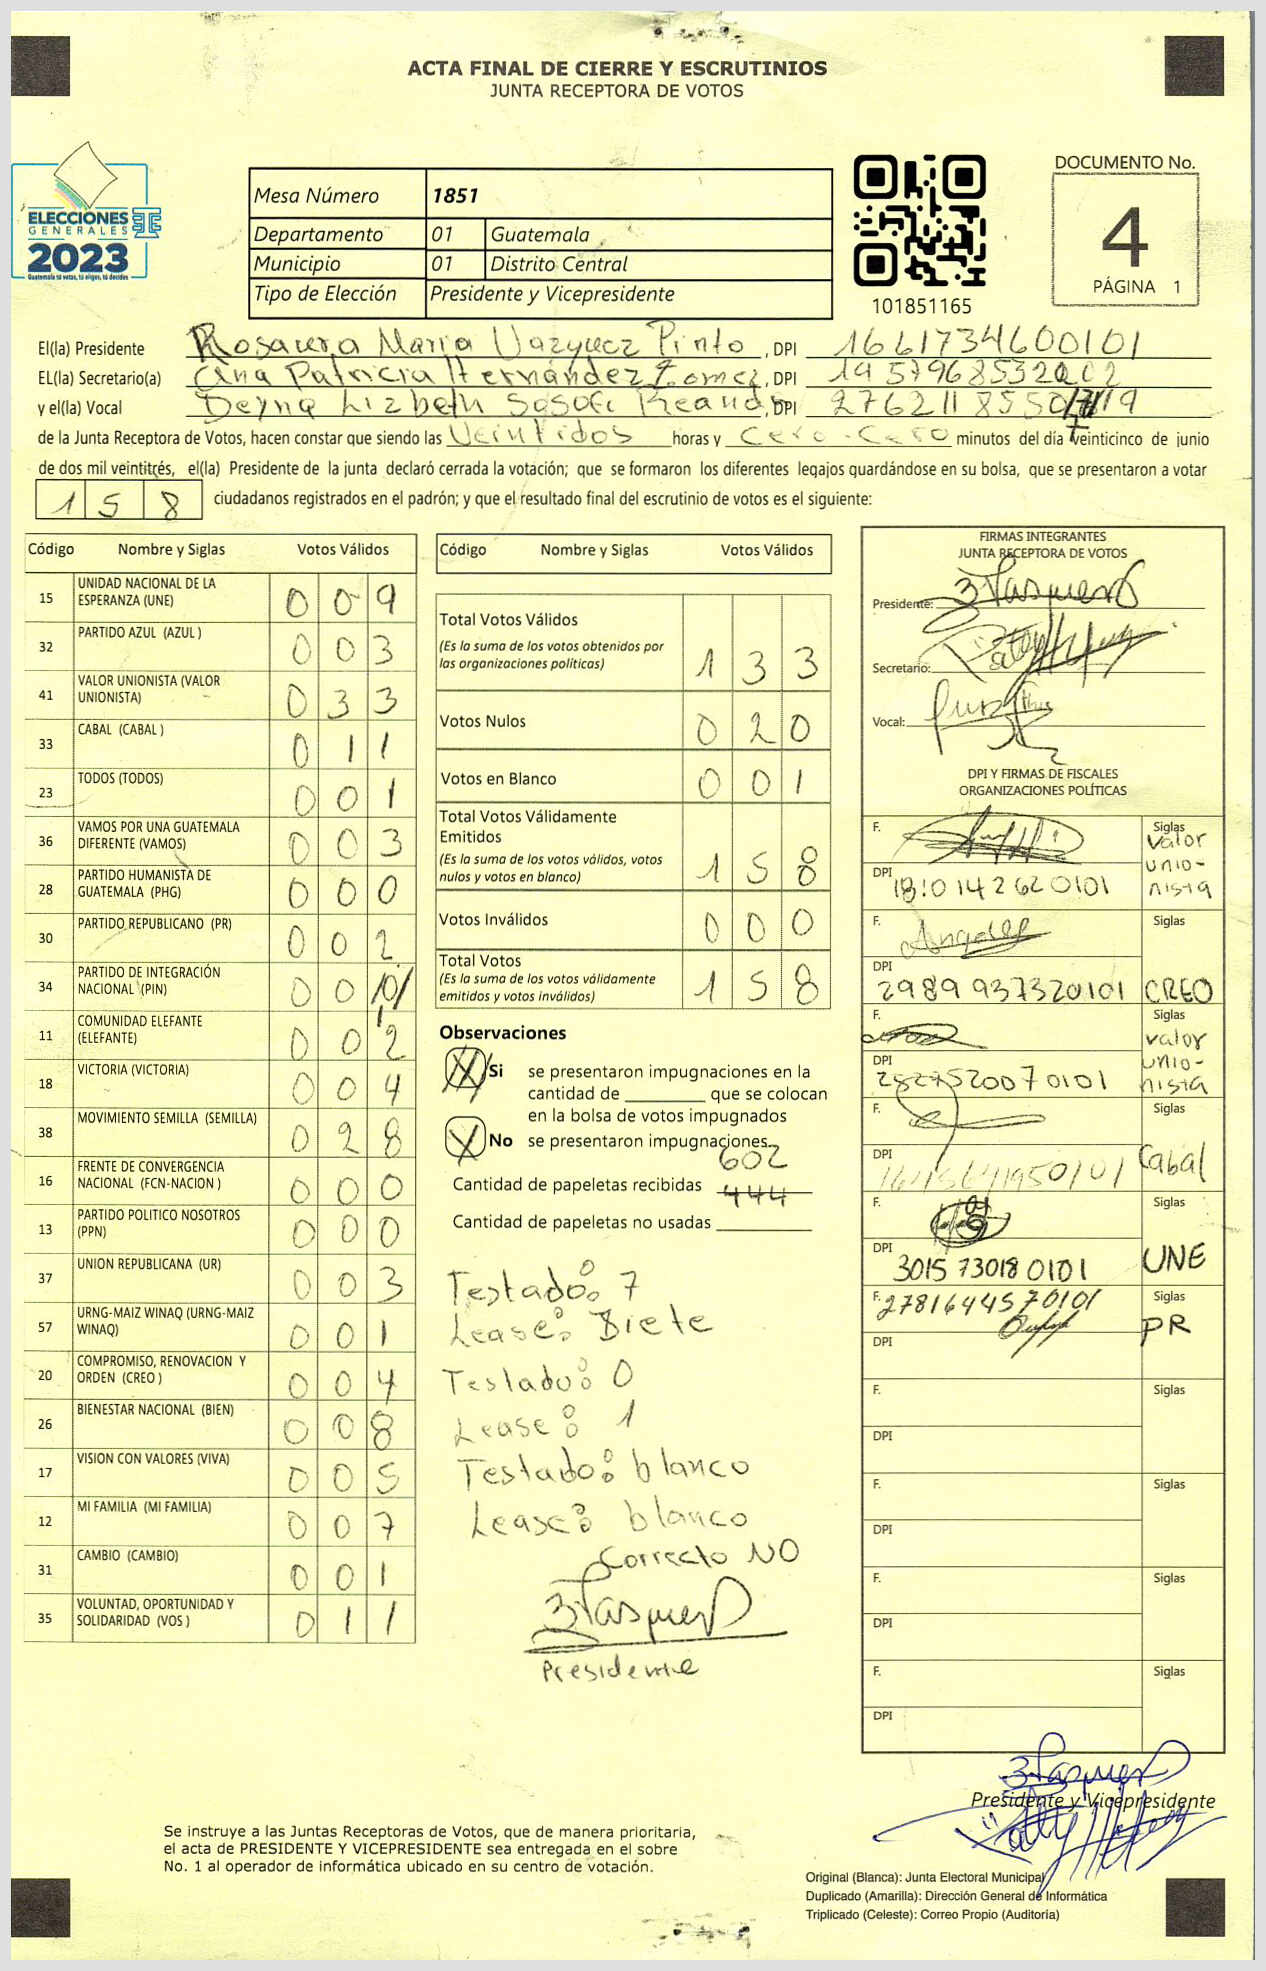 ACTA FINAL DE CIERRE Y ESCRUTINIOS
JUNTA RECEPTORA DE VOTOS
ELECCIONES
GENERALES
2023
Guatemala tú votas, tú eliges, tú decides
Mesa Número 1851
Departamento 01 Guatemala
Municipio 01 Distrito Central
Tipo de Elección Presidente y Vicepresidente
101851165
DOCUMENTO No.
4
PÁGINA 1
El(la) Presidente Rosaura Maria Vazquez Pinto, DPI 1661734600101
EL(la) Secretario(a) Ana Patricia Hernández Gomez, DPI 1957968532202
y el(la) Vocal Lizbeth, DPI
de la Junta Receptora de Votos, hacen constar que siendo las Veintidos horas y Cero-Cero minutos del día veinticinco de junio
de dos mil veintitrés, el(la) Presidente de la junta declaró cerrada la votación; que se formaron los diferentes legajos guardándose en su bolsa, que se presentaron a votar
158 ciudadanos registrados en el padrón; y que el resultado final del escrutinio de votos es el siguiente:
Código Nombre y Siglas Votos Válidos
15 UNIDAD NACIONAL DE LA ESPERANZA (UNE) 009
32 PARTIDO AZUL (AZUL ) 003
41 VALOR UNIONISTA (VALOR UNIONISTA) 033
33 CABAL (CABAL ) 011
23 TODOS (TODOS) 001
36 VAMOS POR UNA GUATEMALA DIFERENTE (VAMOS) 003
28 PARTIDO HUMANISTA DE GUATEMALA (PHG) 000
30 PARTIDO REPUBLICANO (PR) 002
34 PARTIDO DE INTEGRACIÓN NACIONAL (PIN) 00
11 COMUNIDAD ELEFANTE (ELEFANTE) 002
18 VICTORIA (VICTORIA) 004
38 MOVIMIENTO SEMILLA (SEMILLA) 028
16 FRENTE DE CONVERGENCIA NACIONAL (FCN-NACION ) 000
13 PARTIDO POLITICO NOSOTROS (PPN) 000
37 UNION REPUBLICANA (UR) 003
57 URNG-MAIZ WINAQ (URNG-MAIZ WINAQ) 001
20 COMPROMISO, RENOVACION Y ORDEN (CREO ) 004
26 BIENESTAR NACIONAL (BIEN) 008
17 VISION CON VALORES (VIVA) 005
12 MI FAMILIA (MI FAMILIA) 007
31 CAMBIO (CAMBIO) 001
35 VOLUNTAD, OPORTUNIDAD Y SOLIDARIDAD (VOS ) 011
Código Nombre y Siglas Votos Válidos
Total Votos Válidos
(Es la suma de los votos obtenidos por
las organizaciones políticas) 133
Votos Nulos 020
Votos en Blanco 001
Total Votos Válidamente
Emitidos
(Es la suma de los votos válidos, votos
nulos y votos en blanco) 158
Votos Inválidos 000
Total Votos
(Es la suma de los votos válidamente
emitidos y votos inválidos) 158
Observaciones
Si se presentaron impugnaciones en la
cantidad de ________ que se colocan
en la bolsa de votos impugnados
No se presentaron impugnaciones
602
Cantidad de papeletas recibidas 444
Cantidad de papeletas no usadas
Testado: 7
Lease: Siete
Testado: 0
Lease: 1
Testado: blanco
Lease: blanco
Correcto NO
Presidente
FIRMAS INTEGRANTES
JUNTA RECEPTORA DE VOTOS
Presidente:
Secretario:
Vocal:
DPI Y FIRMAS DE FISCALES
ORGANIZACIONES POLÍTICAS
F. Siglas
valor
unio-
nista
DPI 1810142620101
F. Angeles Siglas
DPI 2989937320101 CREO
F. Siglas
valor
unio-
nista
DPI
F. Siglas
DPI Cabal
F. Siglas
DPI 3015730180101 UNE
F. 2781644570101 Siglas
DPI PR
F. Siglas
DPI
F. Siglas
DPI
F. Siglas
DPI
F. Siglas
DPI
Presidente y Vicepresidente
Se instruye a las Juntas Receptoras de Votos, que de manera prioritaria,
el acta de PRESIDENTE Y VICEPRESIDENTE sea entregada en el sobre
No. 1 al operador de informática ubicado en su centro de votación.
Original (Blanca): Junta Electoral Municipal
Duplicado (Amarilla): Dirección General de Informática
Triplicado (Celeste): Correo Propio (Auditoría)